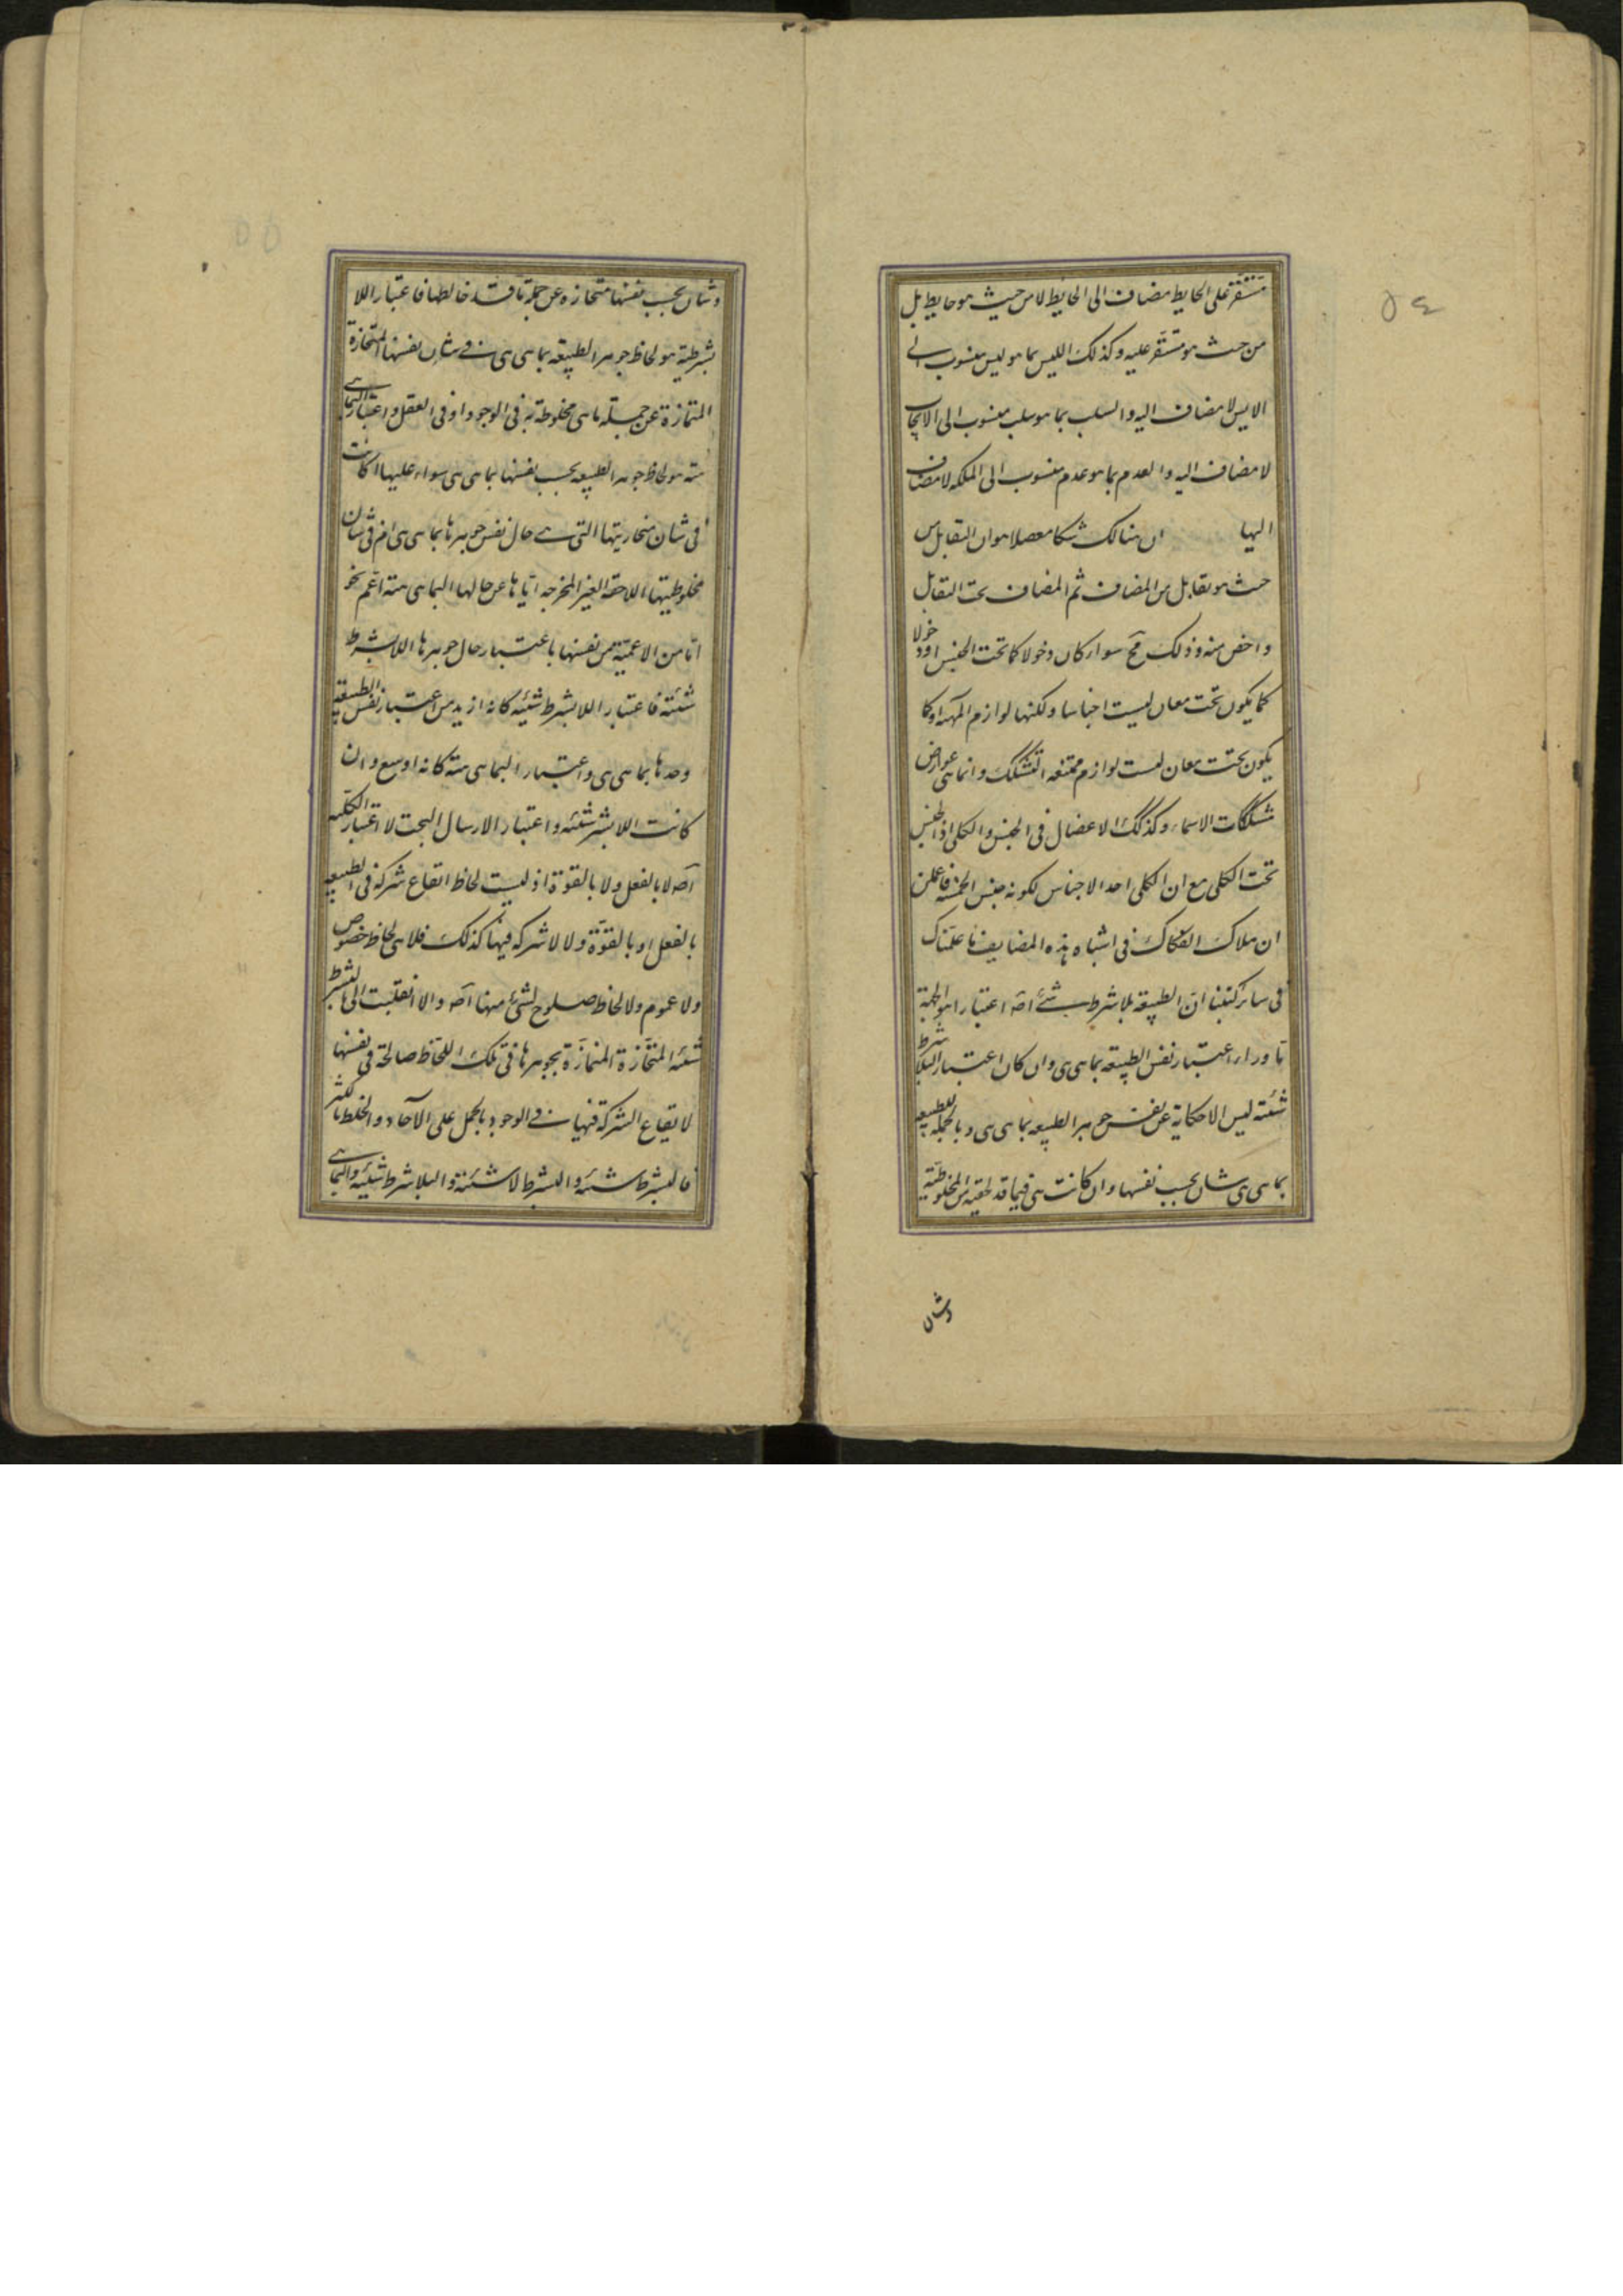 ٥٤
مستقر على الحايط مضاف الى الحايط لا من حيث هو حايط بل
من حيث هو مستقر عليه وكذلك الليس بما هو ليس منسوب الى
الايس لا مضاف اليه والسلب بما هو سلب منسوب الى الايجاب
لا مضاف اليه والعدم بما هو عدم منسوب الى الملكه لا مضاف
اليها ان هنالك شكا معضلا هو ان التقابل من
حيث هو تقابل من المضاف ثم المضاف تحت التقابل
واخص منه وذلك مح سواء كان دخولا كما تحت الجنس او دخولا
كما يكون تحت معان ليست اجناسا ولكنها لوازم المهية او كما
يكون تحت معان ليست لوازم ممتنعه التشكك وانما هى عوارض
مشككات الاسماء وكذلك الاعضال فى الجنس والكلى اذ الجنس
تحت الكلى مع ان الكلى احد الاجناس لكونه جنس الخمسة فاعلمن
ان ملاك الفكاك فى اشباه هذه المضايف ما علمناك
فى ساير كتبنا ان الطبيعة بلا شرط شئ اصه اعتبارا هو الجهة
ما وراء اعتبار نفس الطبيعة بما هى هى وان كان اعتبار البلا شرط
شيئية ليس الا حكاية عن نفس جوهر الطبيعه بما هى هى وبالجملة للطبيعه
بما هى هى شان بحسب نفسها وان كانت هى فيما قد لحقته من المخلوطية
وشان
٥٥
وشان بحسب نفسها منحازة عن جملة ما قد خالطها فاعتبار اللا
بشرطية هو لحاظ جوهر الطبيعة بما هى هى فى شان نفسها المنحازة
الممتازة عن جملة ما هى مخلوطة به فى الوجود او فى العقل واعتبار البما هى
هية هو لحاظ جوهر الطبيعه بحسب نفسها بما هى هى سواء عليها اكانت
فى شان منحازيتها التى هى حال نفس جوهرها بما هى هى ام فى شان
مخلوطيتها اللاحقة الغير المخرجه اياها عن حالها البما هى هية اعم نحو
ما من الاعمية من نفسها باعتبار حال جوهرها اللا بشرط
شيئية فاعتبار اللا بشرط شيئيه كانه ازيد من اعتبار نفس الطبيعة
وحدها بما هى هى واعتبار البما هى هية كانه اوسع وان
كانت اللا بشرط شيئيه واعتبار الارسال البحت لا اعتبار الكلية
اصه لا بالفعل ولا بالقوة اذ ليست لحاظ ايقاع شركه فى الطبيعه
بالفعل او بالقوة ولا لا شركه فيها كذلك فلا هى لحاظ خصوص
ولا عموم ولا لحاظ صلوح لشئ منها اصه والا انقلبت الى ما بشرط
شيئيه المنحازة الممتازة بجوهرها فى تلك اللحاظ صالحة فى نفسها
لا يقاع الشركة فيها فى الوجود بالحمل على الآحاد والخلط بالكثر
فالبشرط شيئيه والبشرط لا شيئية والبلا شرط شيئيه والبما هى